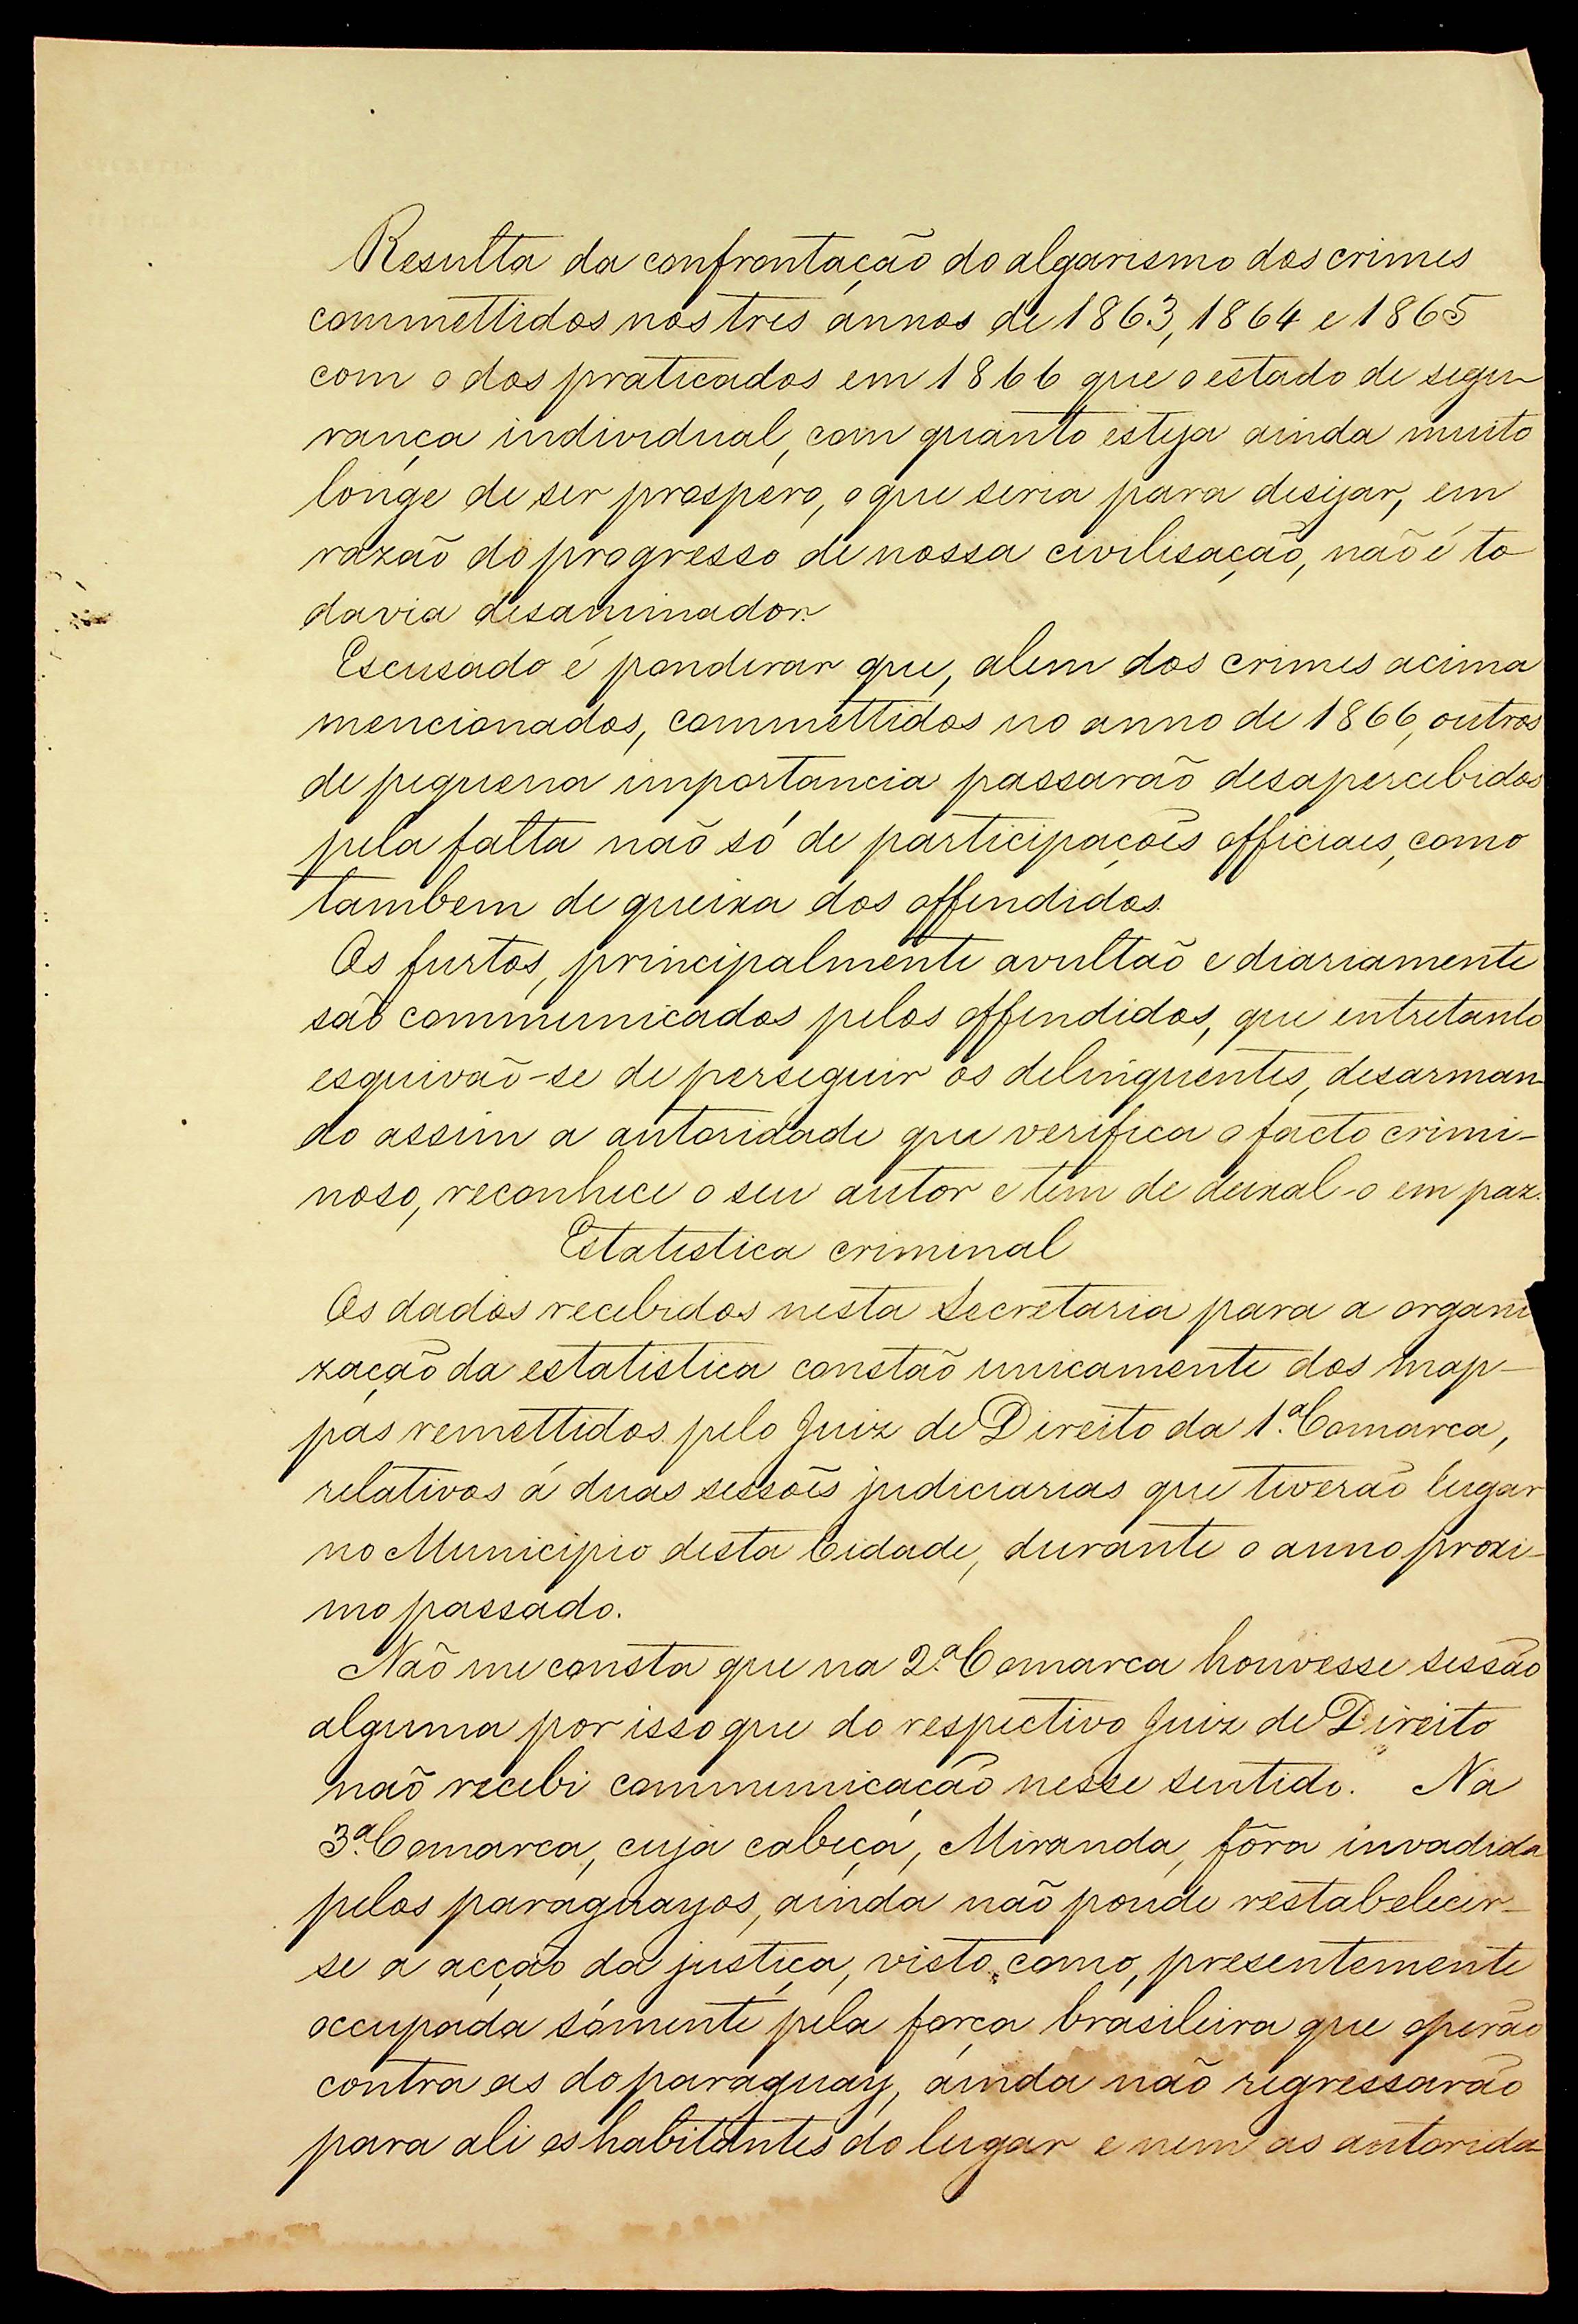 Resulta da confrontação do algarismo dos crimes
commettidos nos tres annos de 1863, 1864 e 1865
com o dos praticados em 1866 que o estado de segu-
rança individual, com quanto esteja ainda muito
longe de ser prospero, o que seria para desejar, em
razão do progresso de nossa civilisação, não é to
davia desanimador.
Escusado é ponderar que, alem dos crimes acima
mencionados, commettidos no anno de 1866, outros
de pequena importancia passarão desapercebidos
pela falta não só de participações officiaes, como
tambem de queixa dos offendidos.
Os furtos, principalmente avultão e diariamente
são communicados pelos offendidos, que entretanto
esquivão-se de perseguir os delinquentes, desarman-
do assim a autoridade que verifica o facto crimi-
noso, reconhece o seu autor e tem de deixal-o em paz.
Estatistica criminal
Os dados recebidos nesta Secretaria para a organi
zação da estatistica constão unicamente dos map-
pas remettidos pelo Juiz de Direito da 1.ª Comarca,
relativos á duas sessões judiciarias que tiverão lugar
no Municipio desta Cidade, durante o anno proxi-
mo passado.
Não me consta que na 2.ª Comarca houvesse sessão
alguma por isso que do respectivo Juiz de Direito
não recebi communicação nesse sentido. Na
3.ª Comarca, cuja cabeça, Miranda, fôra invadida
pelos paraguayos, ainda não poude restabelecer-
se a acção da justiça, visto como, presentemente
occupada sómente pela força brasileira que operão
contra as do paraguay, ainda não regressarão
para ali os habitantes do lugar e nem as autorida-